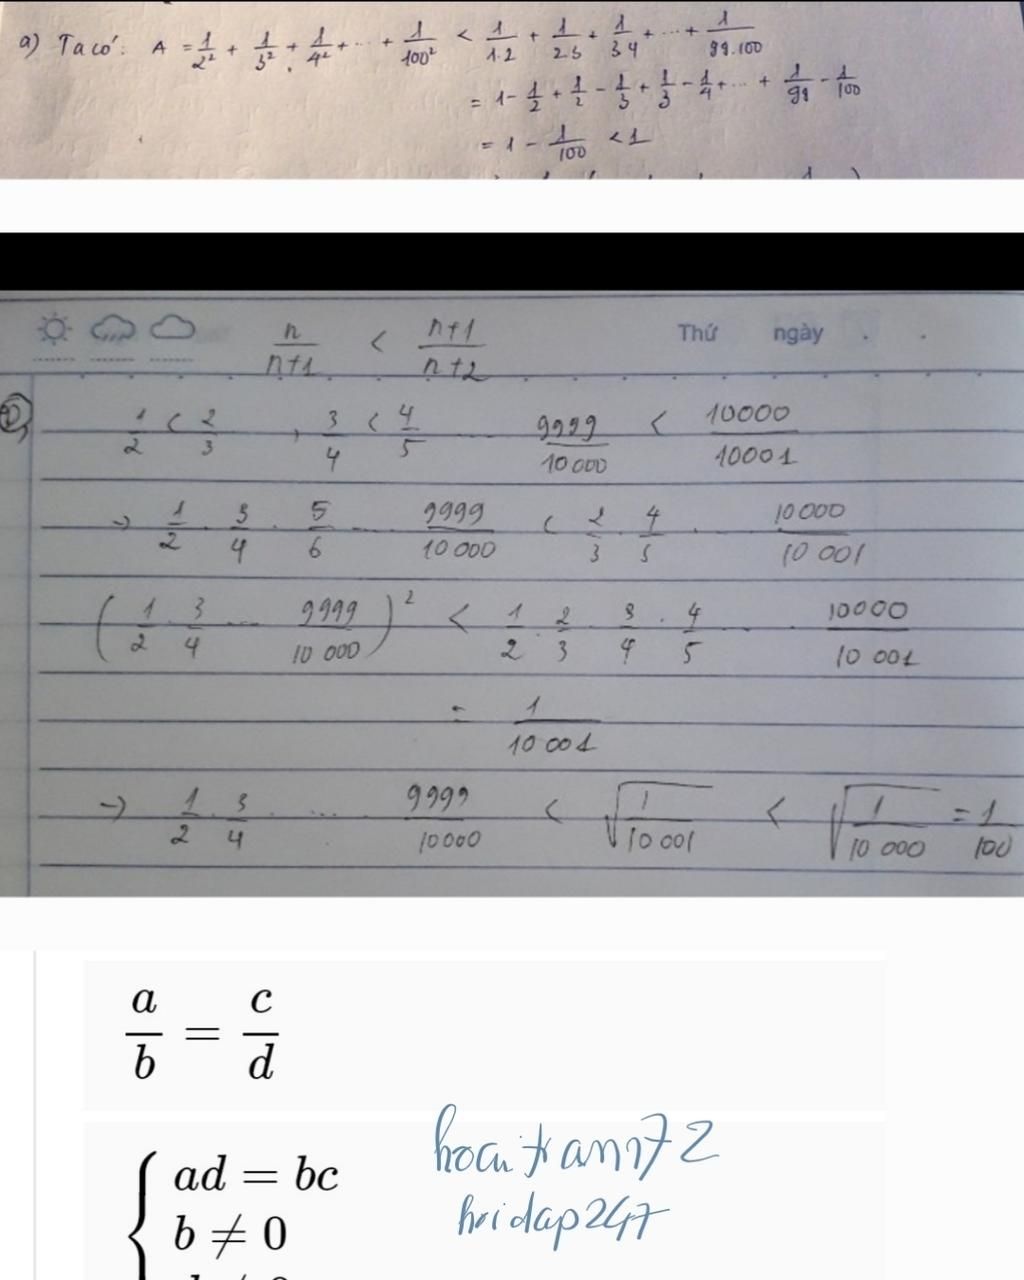 a) Ta có: A = 1/2² + 1/3² + 1/4² + ... + 1/100² < 1/1.2 + 1/2.3 + 1/3.4 + ... + 1/99.100
= 1 - 1/2 + 1/2 - 1/3 + 1/3 - 1/4 + ... + 1/99 - 1/100
= 1 - 1/100 < 1
n/n+1 < n+1/n+2 Thứ ngày
1/2 < 2/3 , 3/4 < 4/5 ... 9999/10000 < 10000/10001
→ 1/2 . 3/4 . 5/6 ... 9999/10000 < 2/3 . 4/5 . 10000/10001
(1/2 . 3/4 ... 9999/10 000)² < 1/2 . 2/3 . 3/4 . 4/5 ... 10000/10 001
= 1/10 001
→ 1/2 . 3/4 ... 9999/10000 < √1/10 001 < √1/10 000 = 1/100
a/b = c/d
ad = bc
b ≠ 0
hoidap247